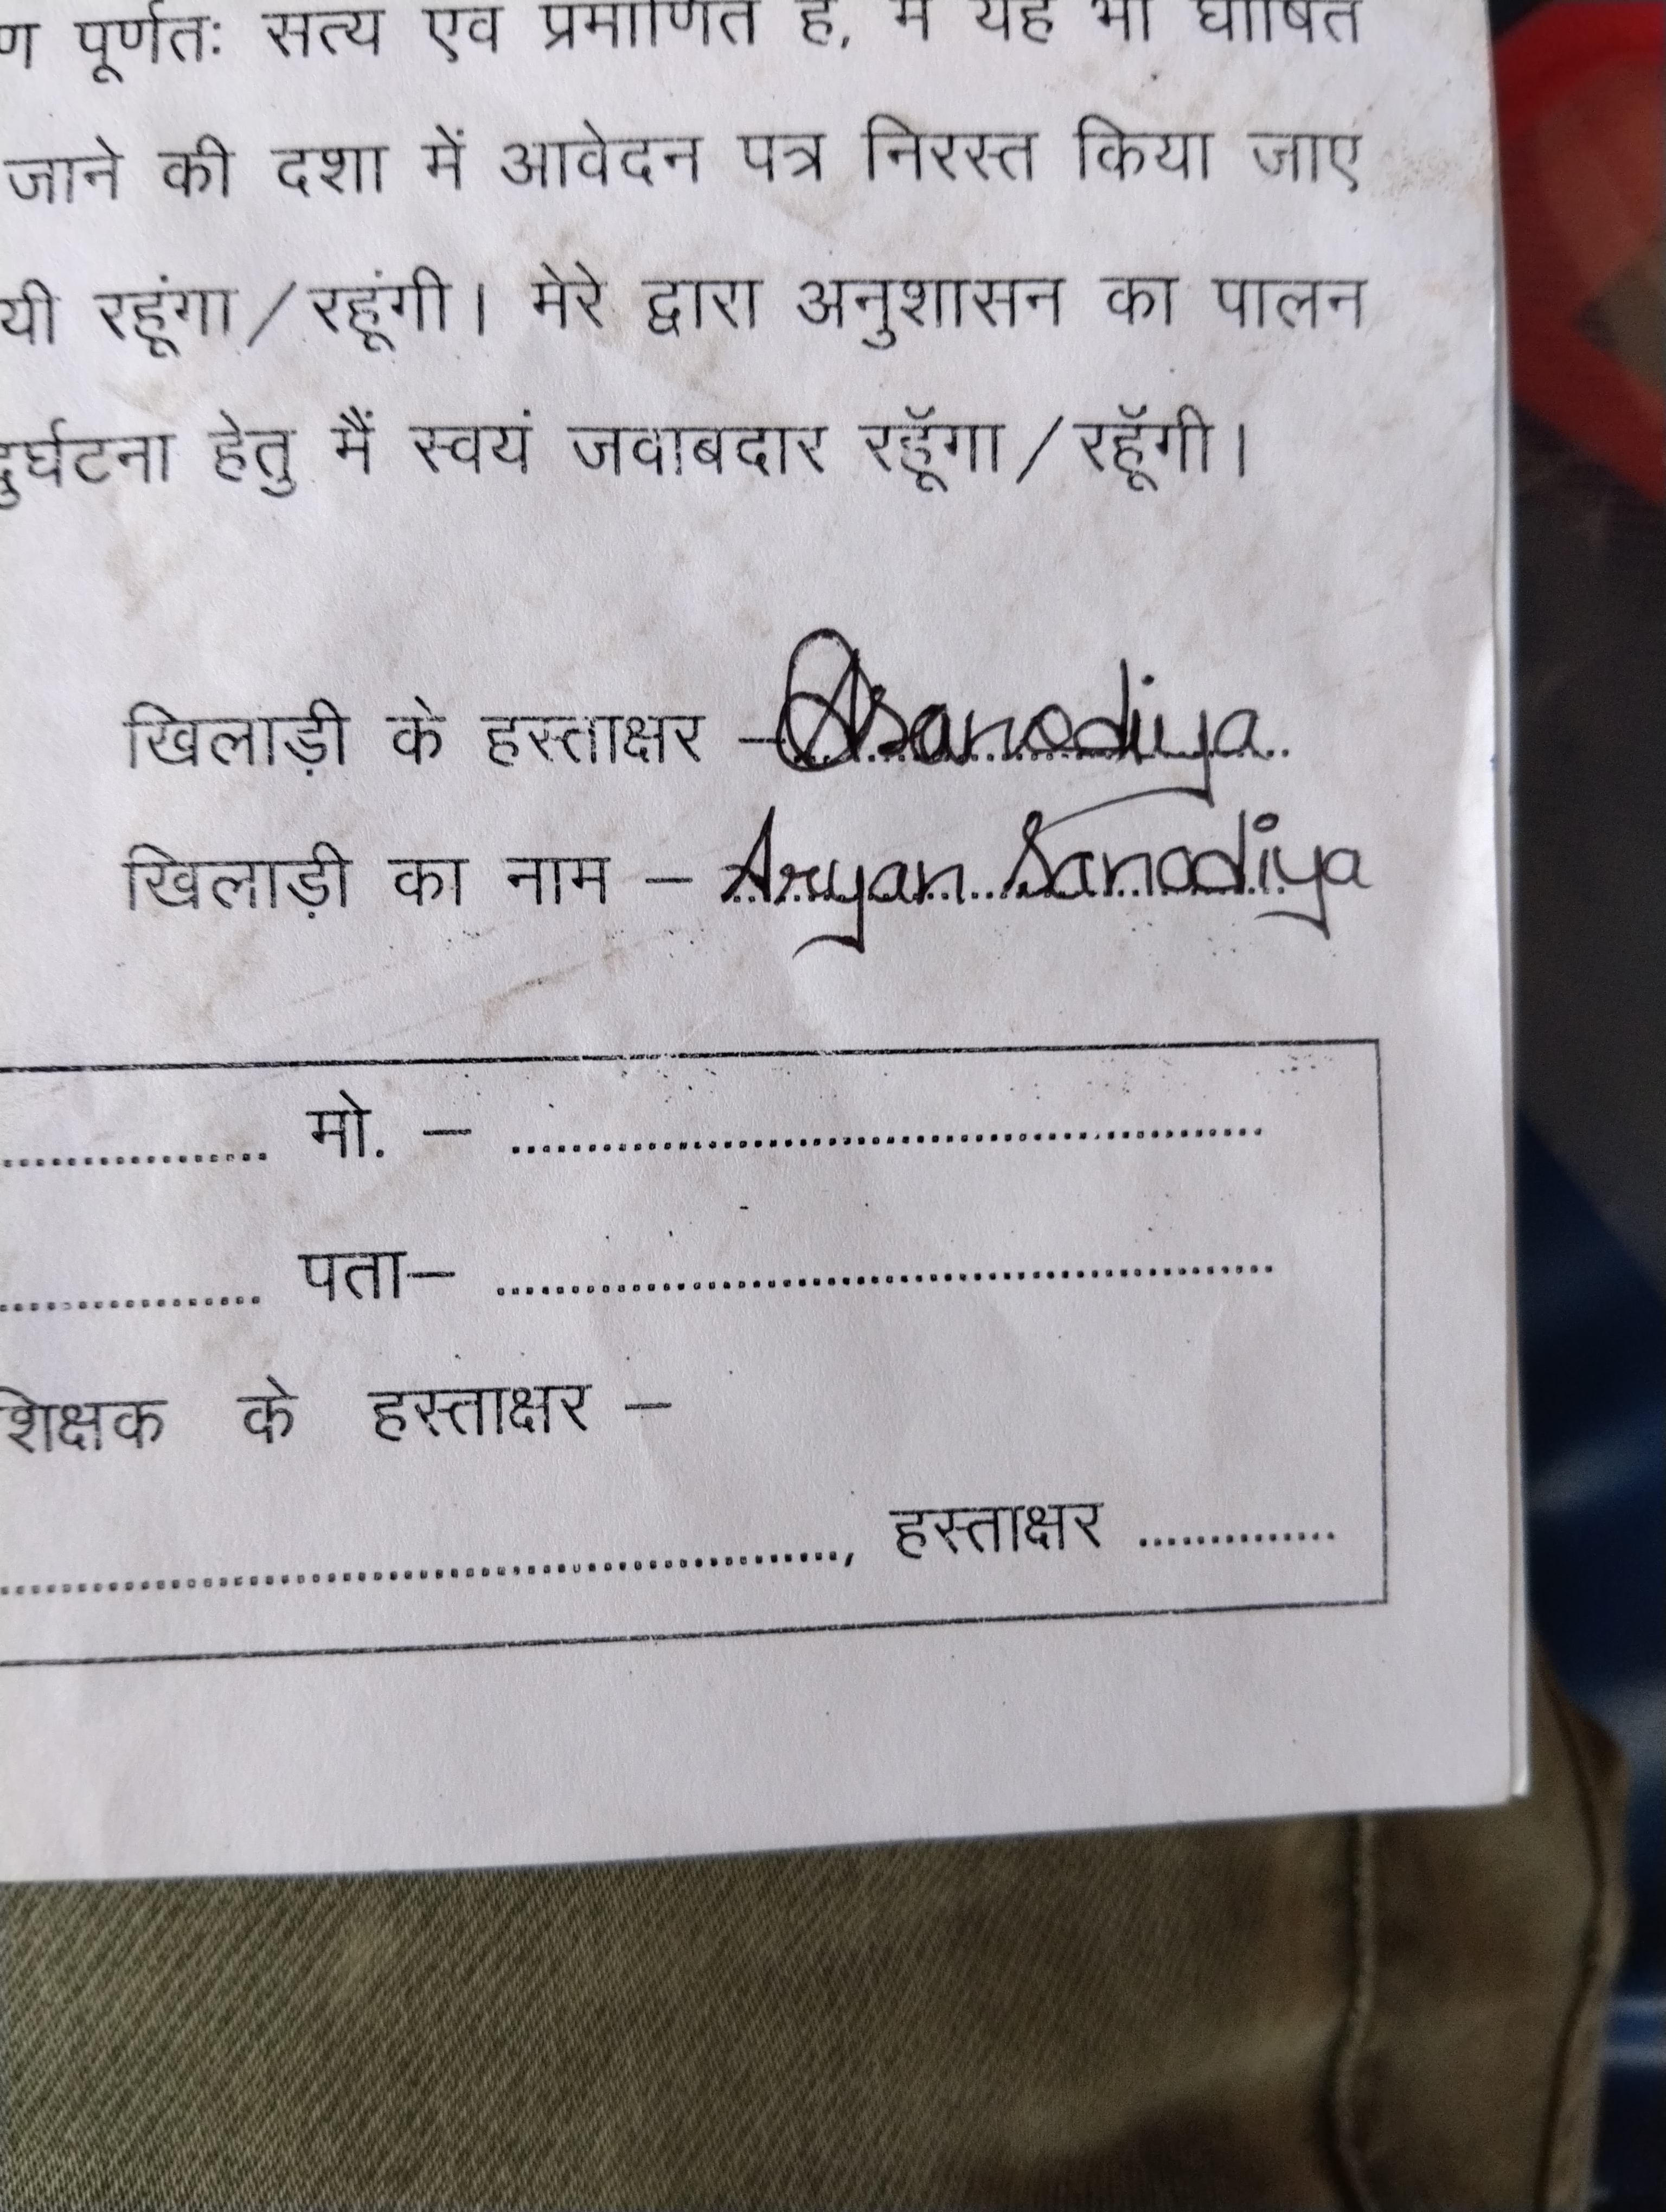 पूर्णतः सत्य एवं प्रमाणित है, मैं यह भी घोषित
जाने की दशा में आवेदन पत्र निरस्त किया जाए
यी रहूंगा/रहूंगी। मेरे द्वारा अनुशासन का पालन
दुर्घटना हेतु मैं स्वयं जवाबदार रहूॅगा/रहूॅगी।
खिलाड़ी के हस्ताक्षर – Asanodiya
खिलाड़ी का नाम – Aryan Sanodiya
................. मो. – ................................
................. पता– ................................
शिक्षक के हस्ताक्षर –
................................, हस्ताक्षर ..............